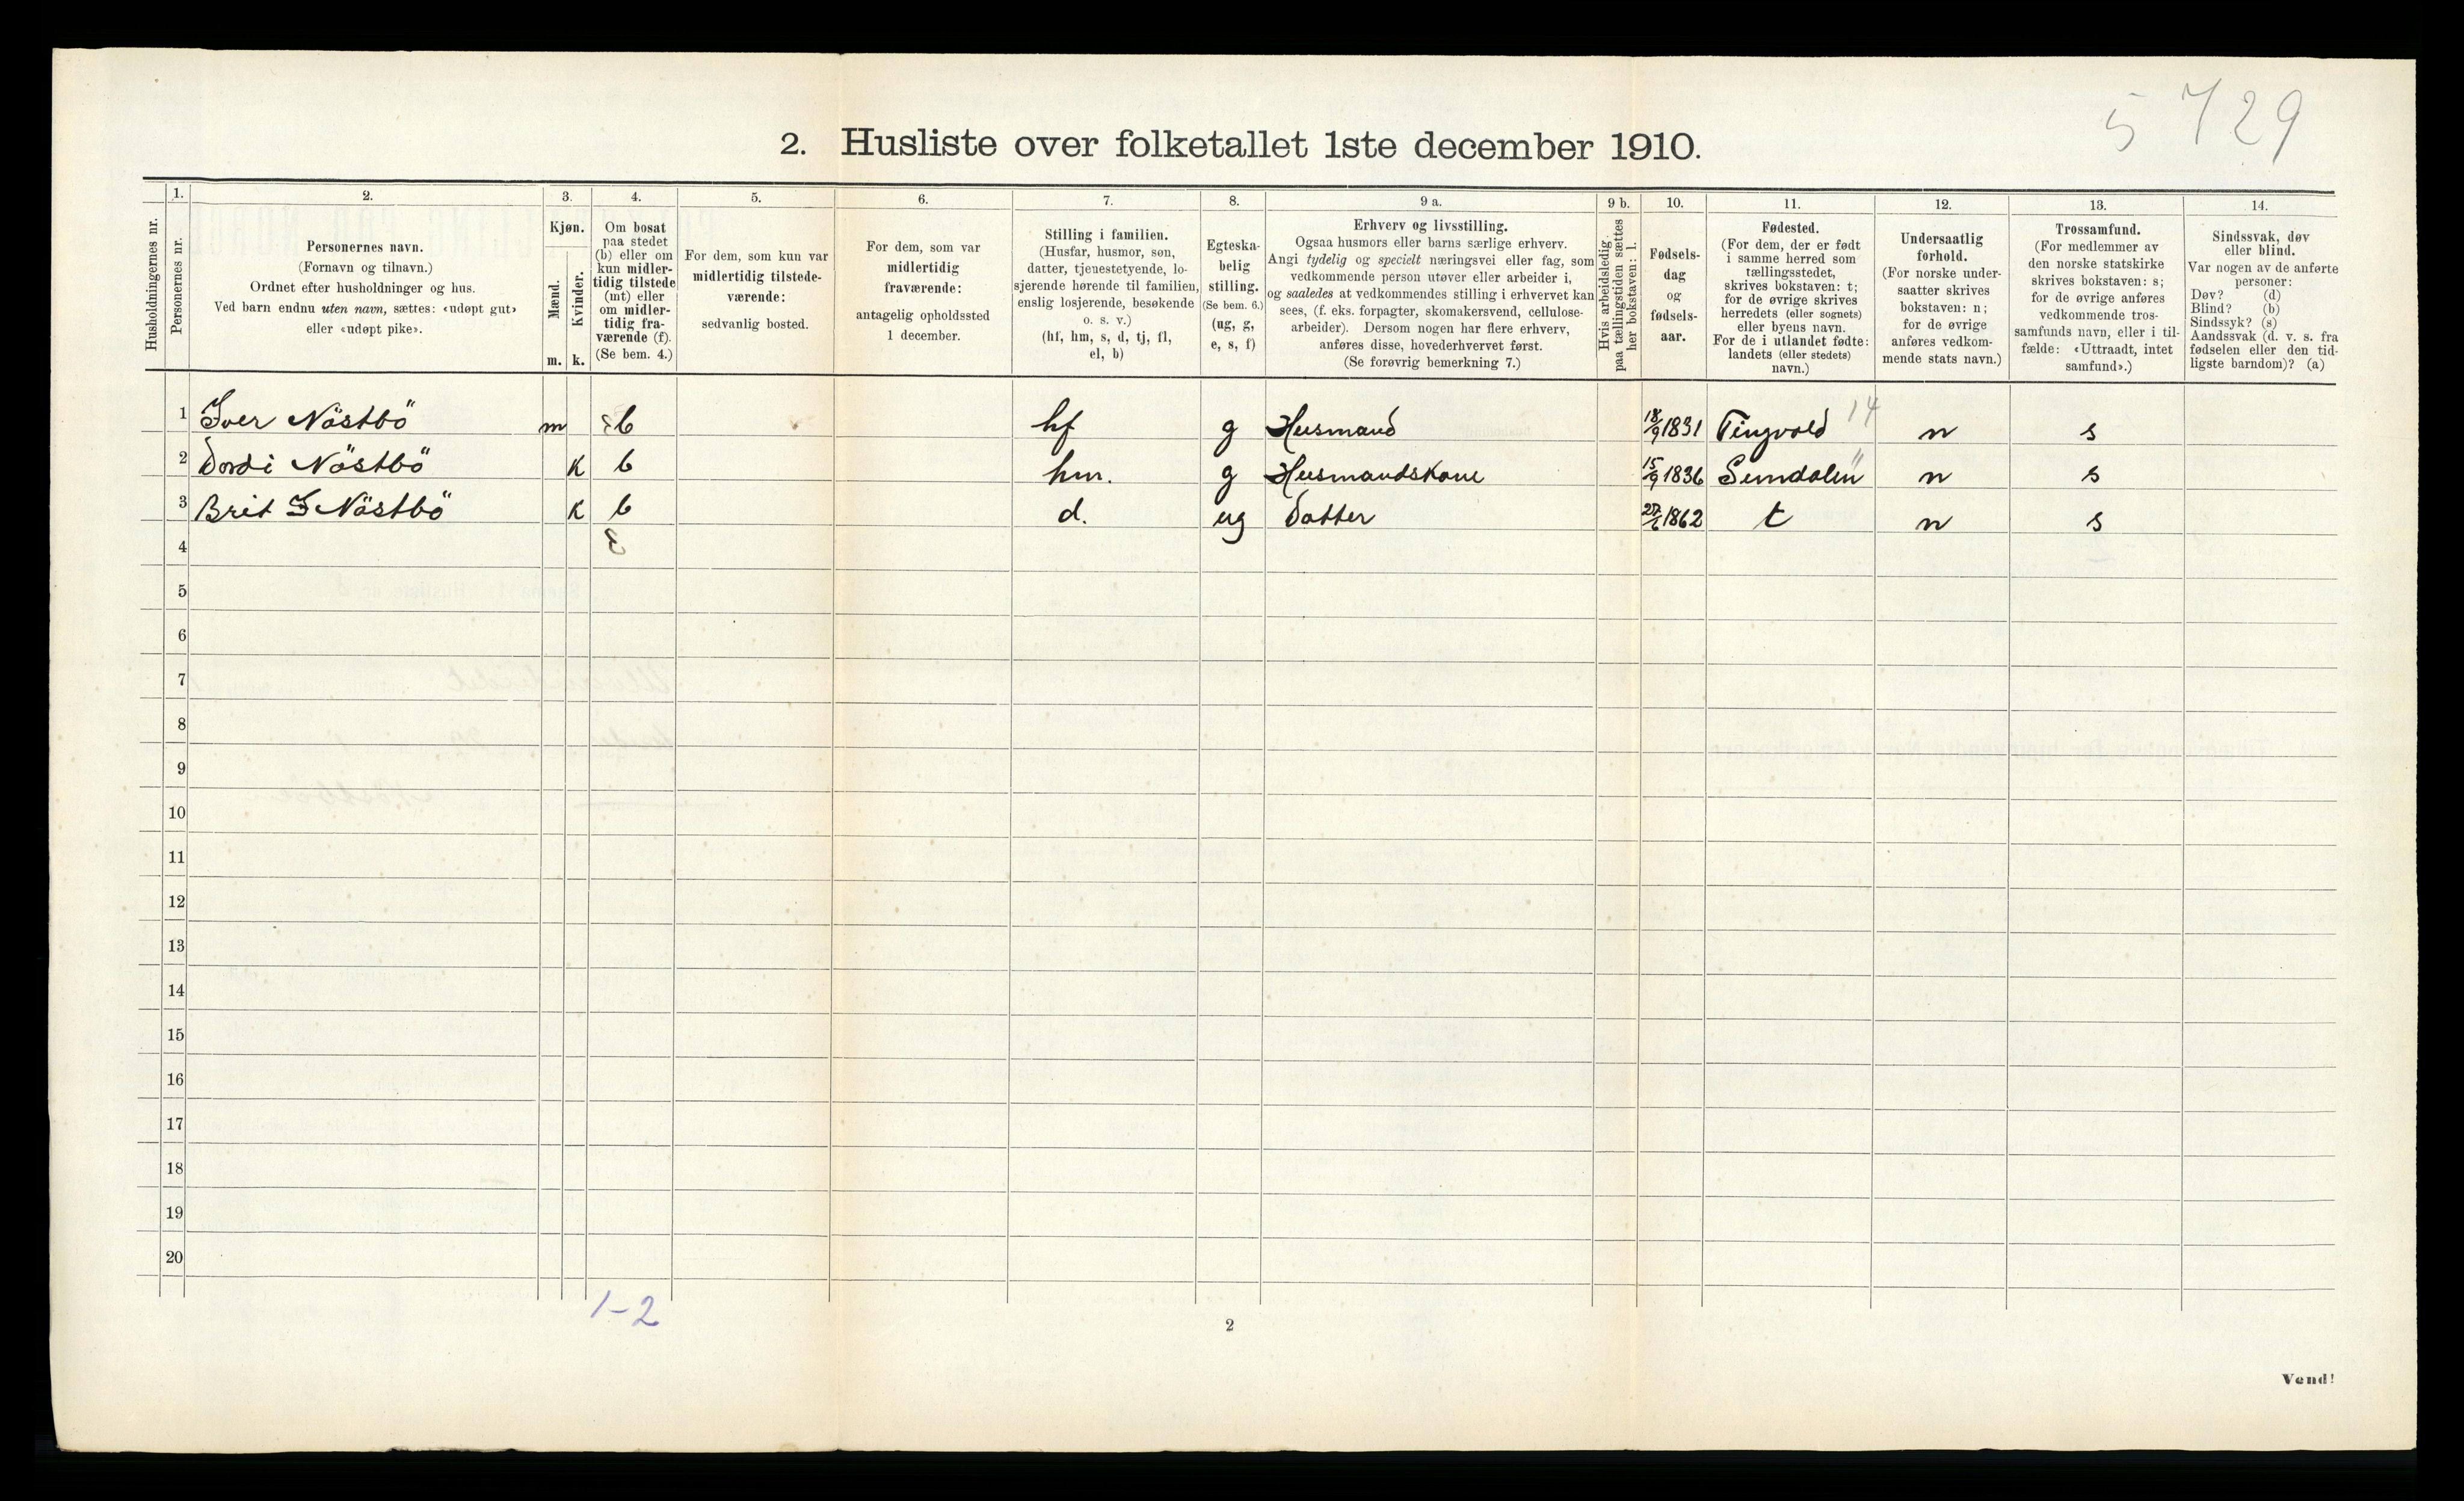 5 729
2. Husliste over folketallet 1ste december 1910.
Husholdningernes nr.
1.
Personernes nr.
2.
Personernes navn.
(Fornavn og tilnavn.)
Ordnet efter husholdninger og hus.
Ved barn endnu uten navn, sættes: «udøpt gut»
eller «udøpt pike».
3.
Kjøn.
Mænd.
Kvinder.
m. k.
4.
Om bosat
paa stedet
(b) eller om
kun midler-
tidig tilstede
(mt) eller
om midler-
tidig fra-
værende (f).
(Se bem. 4.)
5.
For dem, som kun var
midlertidig tilstede-
værende:
sedvanlig bosted.
6.
For dem, som var
midlertidig
fraværende:
antagelig opholdssted
1 december.
7.
Stilling i familien.
(Husfar, husmor, søn,
datter, tjenestetyende, lo-
sjerende hørende til familien,
enslig losjerende, besøkende
o. s. v.)
(hf, hm, s, d, tj, fl,
el, b)
8.
Egteska-
belig
stilling.
(Se bem. 6.)
(ug, g,
e, s, f)
9 a.
Erhverv og livsstilling.
Ogsaa husmors eller barns særlige erhverv.
Angi tydelig og specielt næringsvei eller fag, som
vedkommende person utøver eller arbeider i,
og saaledes at vedkommendes stilling i erhvervet kan
sees, (f. eks. forpagter, skomakersvend, cellulose-
arbeider). Dersom nogen har flere erhverv,
anføres disse, hovederhvervet først.
(Se forøvrig bemerkning 7.)
9 b.
Hvis arbeidsledig
paa tællingstiden sættes
her bokstaven: l.
10.
Fødsels-
dag
og
fødsels-
aar.
11.
Fødested.
(For dem, der er født
i samme herred som
tællingsstedet,
skrives bokstaven: t;
for de øvrige skrives
herredets (eller sognets)
eller byens navn.
For de i utlandet fødte:
landets (eller stedets)
navn.)
12.
Undersaatlig
forhold.
(For norske under-
saatter skrives
bokstaven: n;
for de øvrige
anføres vedkom-
mende stats navn.)
13.
Trossamfund.
(For medlemmer av
den norske statskirke
skrives bokstaven: s;
for de øvrige anføres
vedkommende tros-
samfunds navn, eller i til-
fælde: «Uttraadt, intet
samfund».)
14.
Sindssvak, døv
eller blind.
Var nogen av de anførte
personer:
Døv? (d)
Blind? (b)
Sindssyk? (s)
Aandssvak (d. v. s. fra
fødselen eller den tid-
ligste barndom)? (a)
1 Iver Nöstbö m b hf g Husmand 18/9 1831 Tingvold 14 n s
2 Dordi Nöstbö K b hm. g Husmandskone 15/9 1836 Sundalen " n s
3 Brit I Nöstbö K b d. ug Datter 27/6 1862 t n s
4
5
6
7
8
9
10
11
12
13
14
15
16
17
18
19
20
1-2
2
Vend!